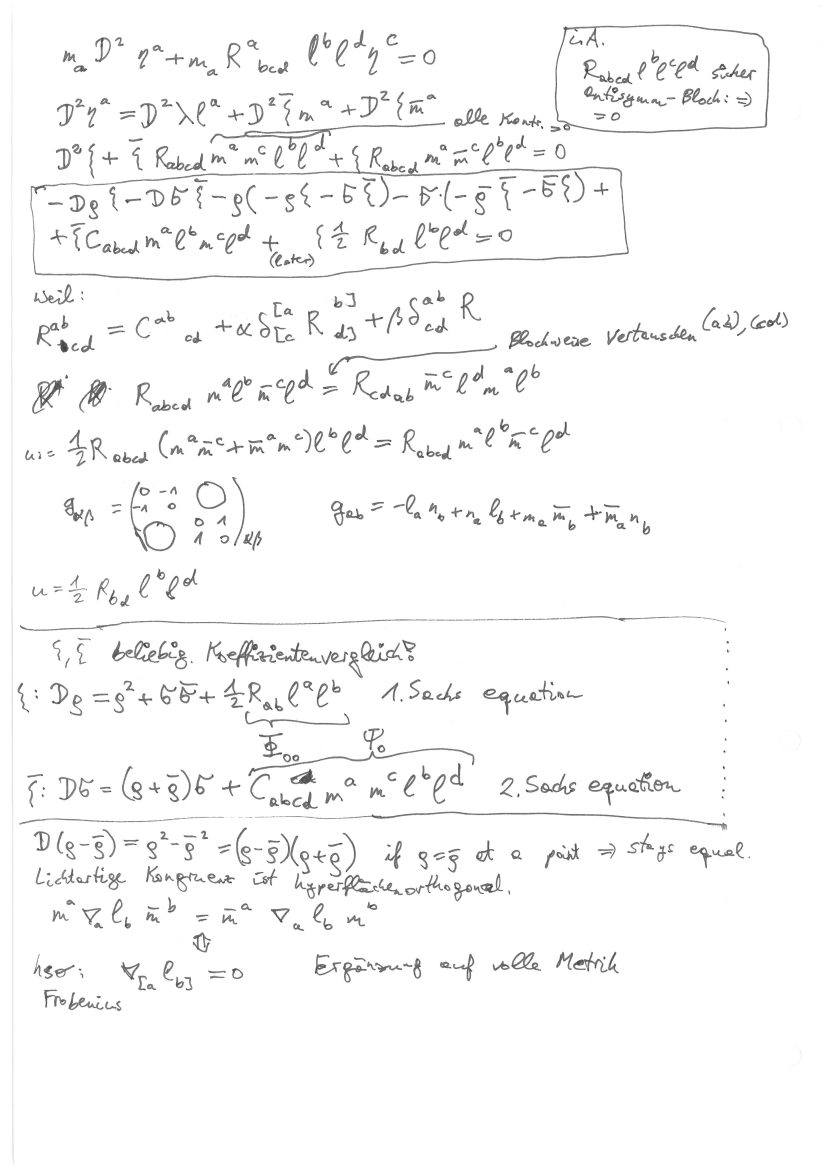 m_a D² η^a + m_a R^a_bcd l^b l^d η^c = 0
i.A.
R_abcd l^b l^c l^d sicher
antisymm-Block: ⇒
= 0
D²η^a = D²λ l^a + D² ξ̄ m^a + D² ξ m̄^a
alle Kontr. = 0
D²ξ + ξ̄ R_abcd m^a m^c l^b l^d + ξ R_abcd m^a m̄^c l^b l^d = 0
-Dρ ξ - Dσ ξ̄ - ρ(-ρξ - σ ξ̄) - σ·(-ρ̄ ξ̄ - σ̄ ξ) +
+ ξ̄ C_abcd m^a l^b m^c l^d + (later) ξ ½ R_bd l^b l^d = 0
Weil:
R^ab_cd = C^ab_cd + α δ^[a_[c R^b]_d] + β δ^ab_cd R
Blockweise Vertauschen (ab), (cd)
R_abcd m^a l^b m̄^c l^d = R_cdab m̄^c l^d m^a l^b
u := ½ R_abcd (m^a m̄^c + m̄^a m^c) l^b l^d = R_abcd m^a l^b m̄^c l^d
g_αβ = ( 0 -1 -1 0 0 1 1 0 )_αβ g_ab = -l_a n_b + n_a l_b + m_a m̄_b + m̄_a n_b
u = ½ R_bd l^b l^d
ξ, ξ̄ beliebig. Koeffizientenvergleich:
ξ: Dρ = ρ² + σσ̄ + ½ R_ab l^a l^b 1. Sachs equation
Φ_00 Ψ_0
ξ̄: Dσ = (ρ + ρ̄)σ + C_abcd m^a m^c l^b l^d 2. Sachs equation
D(ρ - ρ̄) = ρ² - ρ̄² = (ρ - ρ̄)(ρ + ρ̄) if ρ = ρ̄ at a point ⇒ stays equal.
Lichtartige Kongruenz ist hyperflächenorthogonal.
m^a ∇_a l_b m̄^b = m̄^a ∇_a l_b m^b
⇕
hso: ∇_[a l_b] = 0 Ergänzung auf volle Metrik
Frobenius